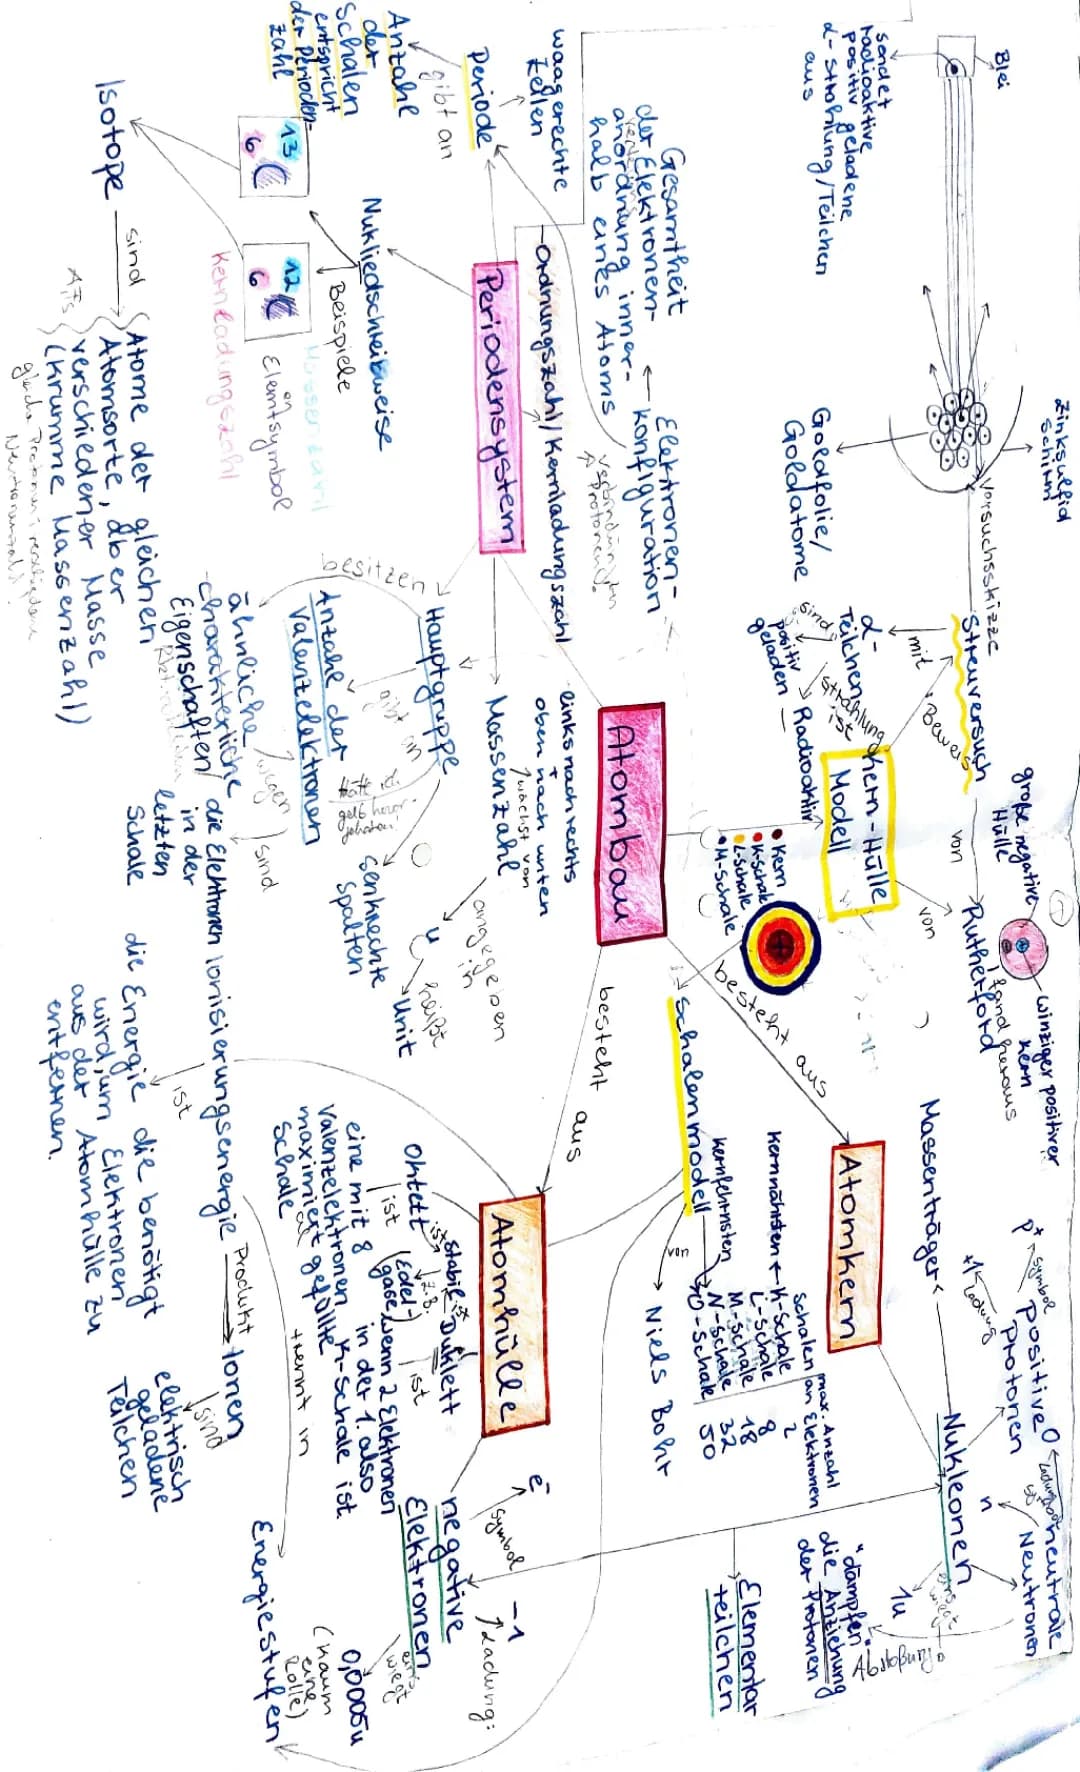 Blei
sendet
radioaktive
positiv geladene
α-Strahlung/Teilchen
aus
Zinksulfid
Schirm
Goldfolie/
Goldatome
Versuchsskizze
Streuversuch
mit
α-
Teilchen
sind
positiv
geladen
Strahlung
ist
Radioaktiv
Beweis
von
Rutherford
fand heraus
große negative
Hülle
winziger positiver
Kern
Kern-Hülle
Modell
von
Kern
K-Schale
L-Schale
M-Schale
Atombau
besteht aus
besteht aus
Atomkern
Massenträger
Nukleonen
positive
Protonen
Symbol
p+
Ladung
+1
neutrale
Neutronen
n
Ladung
0
wiegt
1u
"dämpfen"
die Anziehung
der Protonen
Abstoßung
Elementar
teilchen
Schalenmodell
von
Niels Bohr
kernnähsten
kernfehrnsten
Schalen
max. Anzahl
an Elektronen
K-Schale 2
L-Schale 8
M-Schale 18
N-Schale 32
O-Schale 50
Atomhülle
negative
Elektronen
Symbol
e-
Ladung:
-1
wiegt
0,0005u
(kaum
eine
Rolle)
Energiestufen
trennt in
Oktett
ist
stabil
z.B.
(Edel-
gase)
ist
Duklett
ist
wenn 2 Elektronen
in der 1. also
K-Schale ist.
ist
eine mit 8
Valenzelektronen
maximal gefüllte
Schale
Ionisierungsenergie
Produkt
Ionen
sind
elektrisch
geladene
Teilchen
ist
die Energie die benötigt
wird, um Elektronen
aus der Atomhülle zu
entfernen.
Periodensystem
Ordnungszahl/Kernladungszahl
links nach rechts
+
oben nach unten
wächst von
Massenzahl
angegeben
in
u
heißt
Unit
Hauptgruppe
senkrechte
Spalten
gibt an
Anzahl der
Valenzelektronen
hätte ich
gelb hervor-
gehoben
sind
die Elektronen
in der
letzten
Schale
besitzen
ähnliche
charakterliche
Eigenschaften/
Periode
waagerechte
Zeilen
gibt an
Anzahl
der
Schalen
entspricht
der Perioden-
zahl
Elektronen-
konfiguration
Gesamtheit
der Elektronen-
anordnung inner-
halb eines Atoms
Nukliedschreibweise
Beispiele
13
6 C
12
6 C
Massenzahl
Elemtsymbol
Kernladungszahl
Isotope
sind
Atome der gleichen
Atomsorte, aber
verschiedener Masse
(krumme Massenzahl)